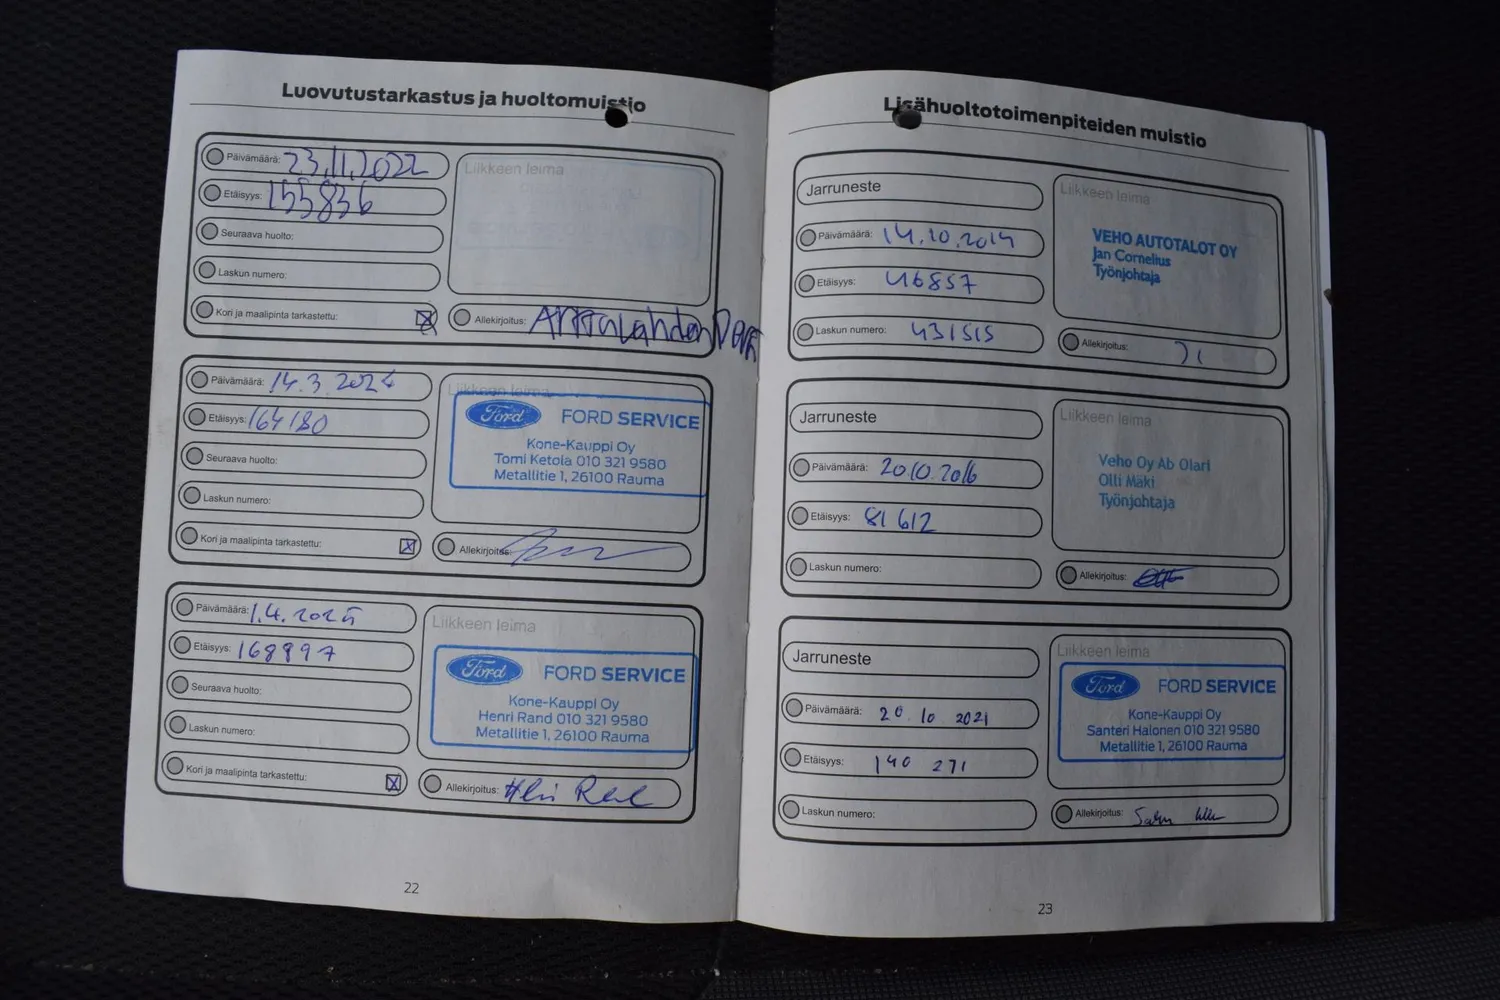 Luovutustarkastus ja huoltomuistio
Päivämäärä: 23.11.2022
Etäisyys: 155836
Seuraava huolto:
Laskun numero:
Kori ja maalipinta tarkastettu:
Liikkeen leima
Allekirjoitus:
Päivämäärä: 14.3.2024
Etäisyys: 164180
Seuraava huolto:
Laskun numero:
Kori ja maalipinta tarkastettu:
Liikkeen leima
Ford FORD SERVICE
Kone-Kauppi Oy
Tomi Ketola 010 321 9580
Metallitie 1, 26100 Rauma
Allekirjoitus:
Päivämäärä: 1.4.2025
Etäisyys: 168997
Seuraava huolto:
Laskun numero:
Kori ja maalipinta tarkastettu:
Liikkeen leima
Ford FORD SERVICE
Kone-Kauppi Oy
Henri Rand 010 321 9580
Metallitie 1, 26100 Rauma
Allekirjoitus:
22
Lisähuoltotoimenpiteiden muistio
Jarruneste
Päivämäärä: 14.10.2014
Etäisyys: 46857
Laskun numero: 431515
Liikkeen leima
VEHO AUTOTALOT OY
Jan Cornelius
Työnjohtaja
Allekirjoitus:
Jarruneste
Päivämäärä: 20.10.2016
Etäisyys: 81 612
Laskun numero:
Liikkeen leima
Veho Oy Ab Olari
Olli Mäki
Työnjohtaja
Allekirjoitus:
Jarruneste
Päivämäärä: 20.10 2021
Etäisyys: 140 271
Laskun numero:
Liikkeen leima
Ford FORD SERVICE
Kone-Kauppi Oy
Santeri Halonen 010 321 9580
Metallitie 1, 26100 Rauma
Allekirjoitus:
23